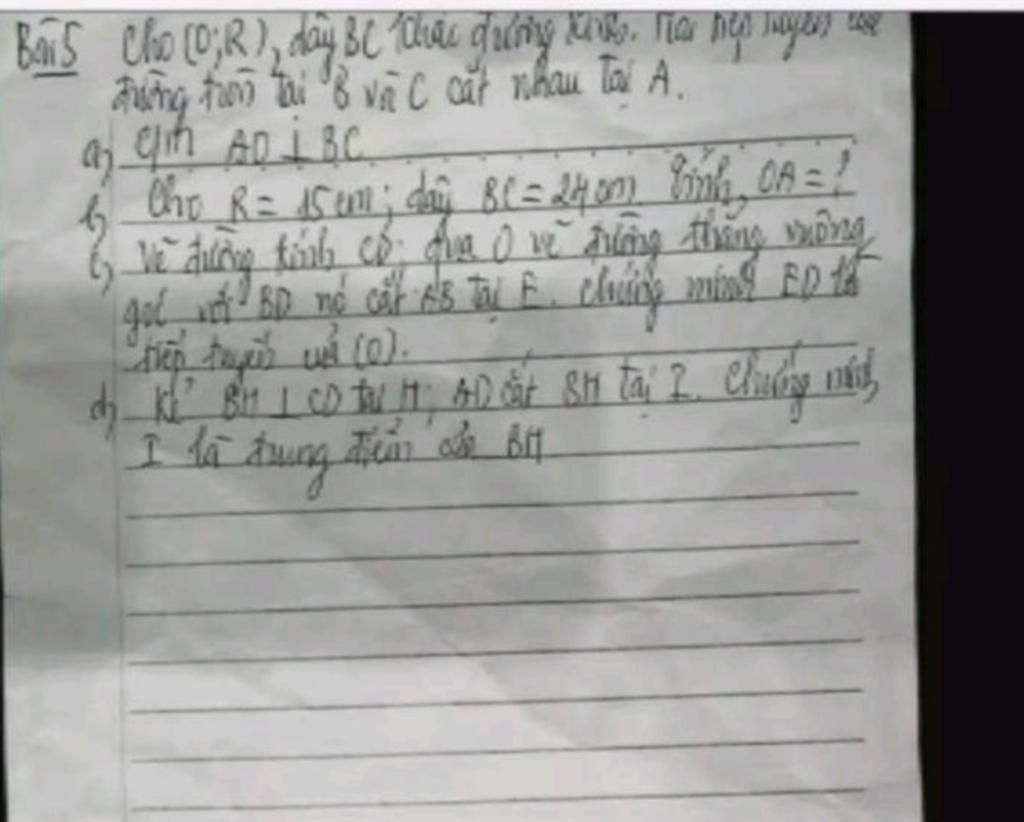 Bài 5 Cho (O;R), dây BC khác đường kính. Hai tiếp tuyến của
đường tròn tại B và C cắt nhau tại A.
a, C/m AO ⊥ BC
b, Cho R = 15 cm; dây BC = 24 cm. Tính OA = ?
c, Vẽ đường kính CD. Qua O vẽ đường thẳng vuông
góc với BD nó cắt AB tại E. Chứng minh ED là
tiếp tuyến của (O).
d, Kẻ BH ⊥ CD tại H; AD cắt BH tại I. Chứng minh
I là trung điểm của BH